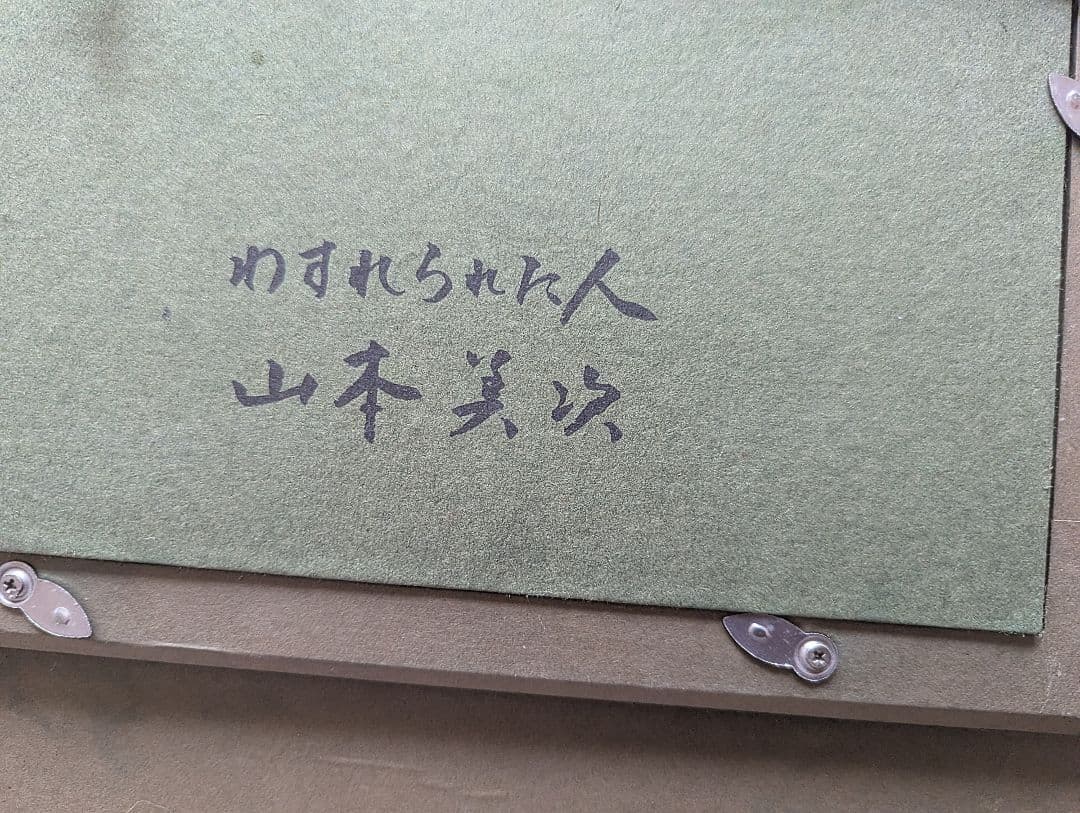 わすれられた人
山本美次